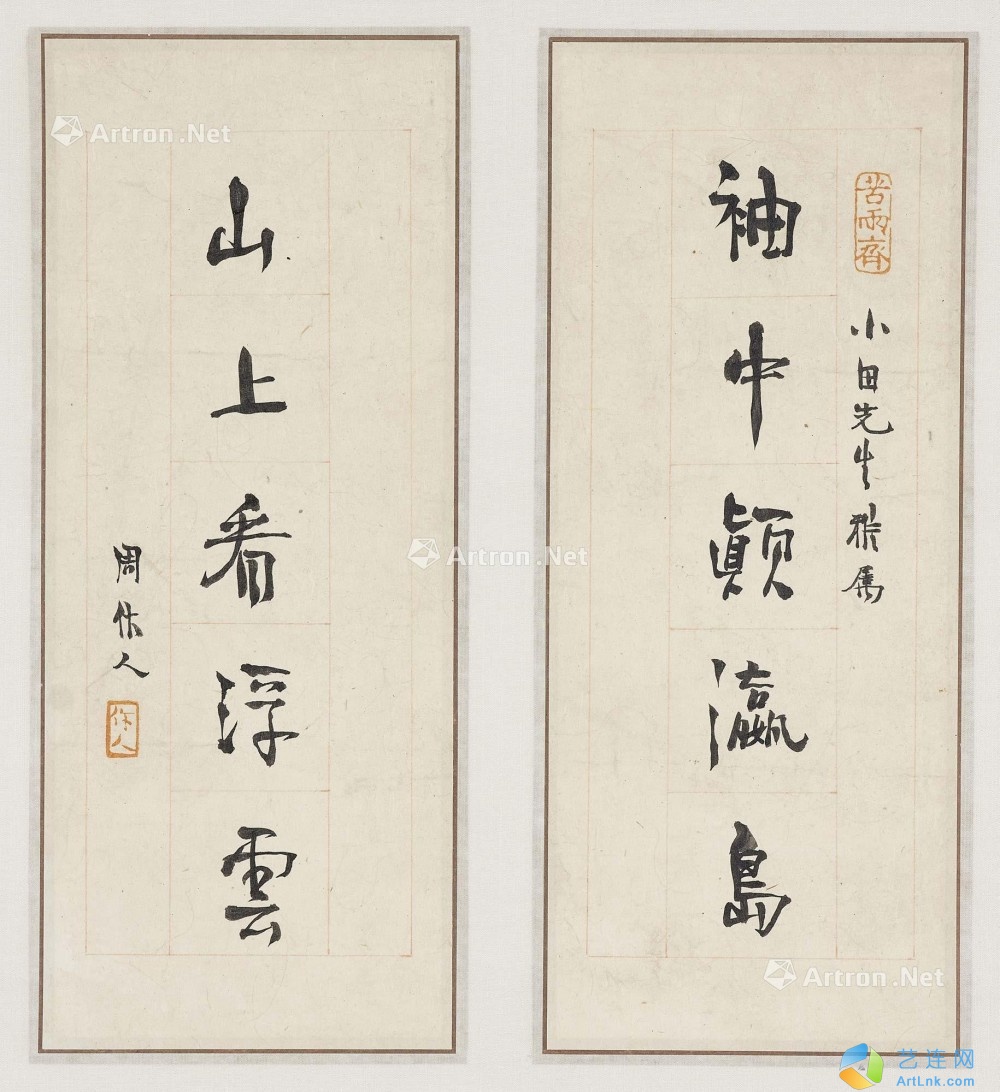 苦雨齋
小田先生雅属
袖中顛瀛島
山上看浮雲
周作人
作人
Artron.Net
Artron.Net
Artron.Net
艺连网
ArtLnk.com